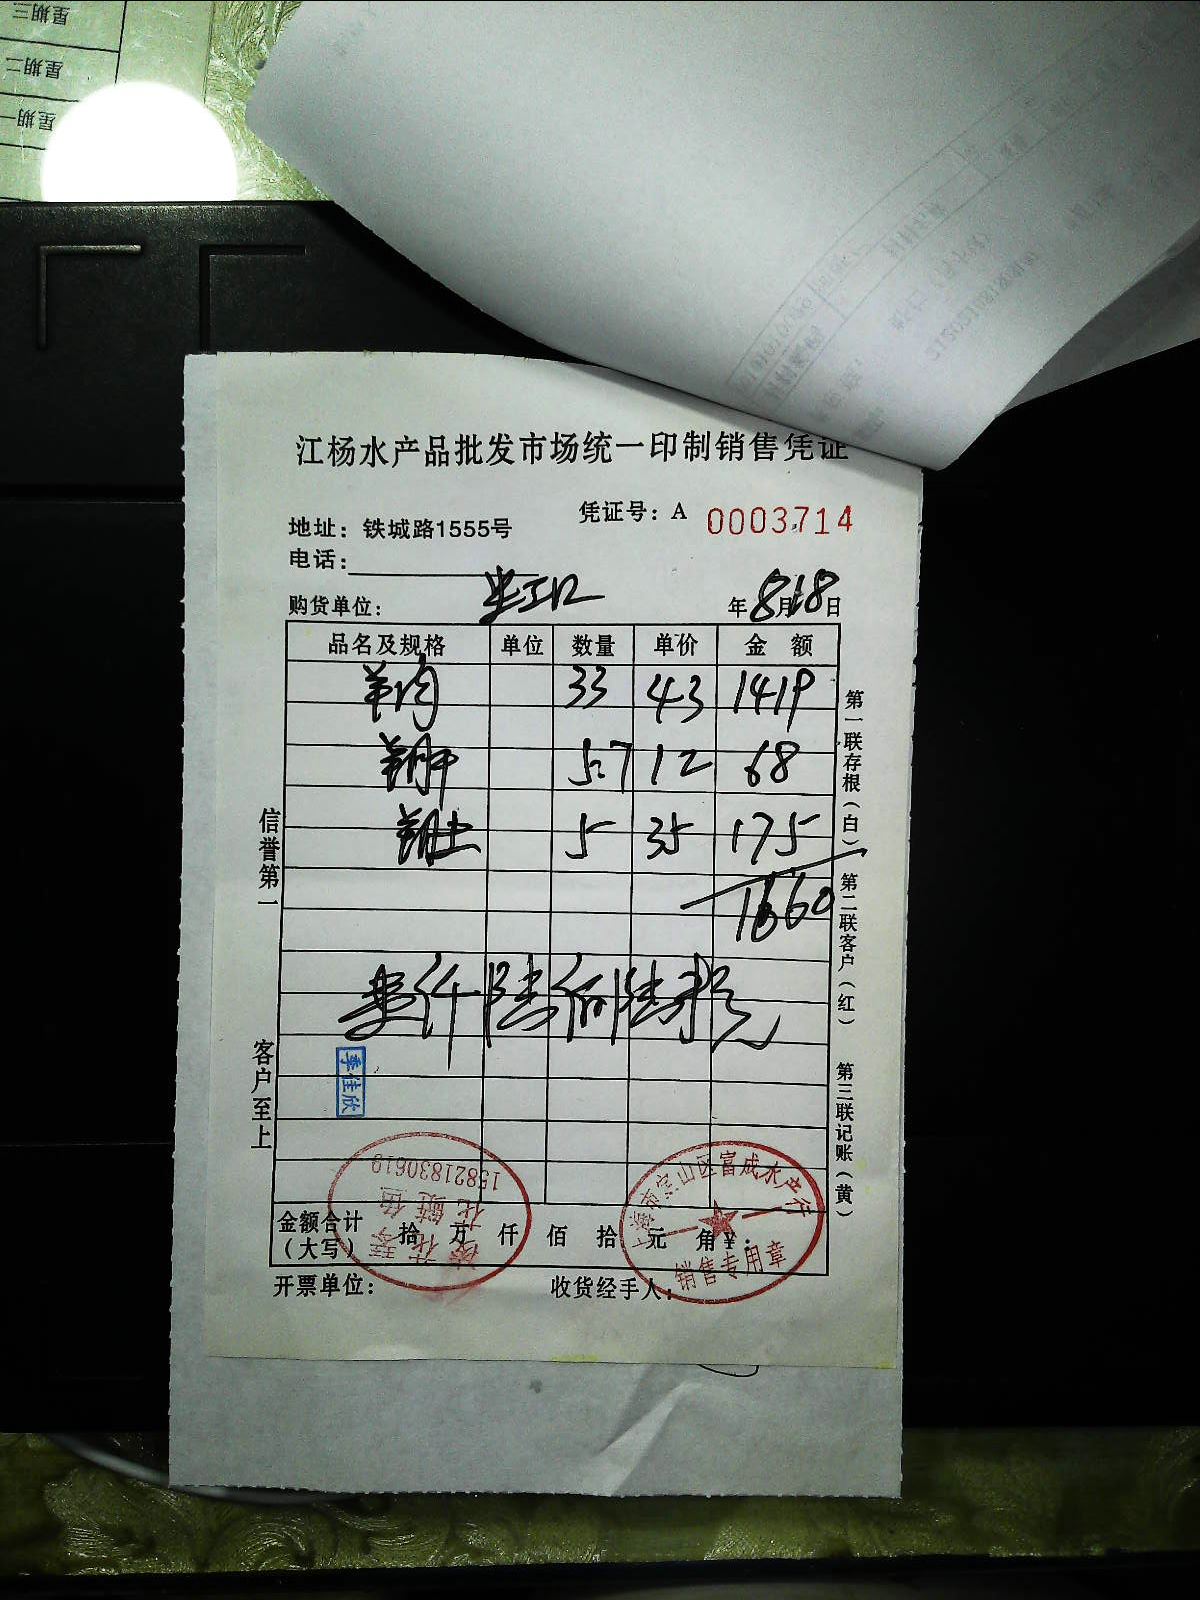 星期三
星期二
星期一
江杨水产品批发市场统一印制销售凭证
凭证号：A 0003714
地址：铁城路1555号
电话：
购货单位： 年8月18日
品名及规格 单位 数量 单价 金 额
羊肉 33 43 1419
羊肝 5.7 12 68
羊肚 5 35 175
1660
壹仟陆佰陆拾元
信誉第一
客户至上
第一联存根（白） 第二联客户（红） 第三联记账（黄）
季佳欣
15821830619
上海市宝山区富成水产行
销售专用章
金额合计（大写） 拾 万 仟 佰 拾 元 角 ¥：
开票单位： 收货经手人：